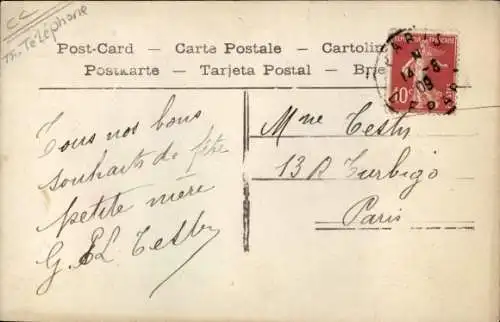 CC
Th. Téléphone
Post-Card — Carte Postale — Cartolin
Postkarte — Tarjeta Postal — Brie
PARIS
14 - 6
09
10c
Tous nos bons
souhaits de fête
petite mère
G. EL Testu
Mme Testu
13 R Turbigo
Paris